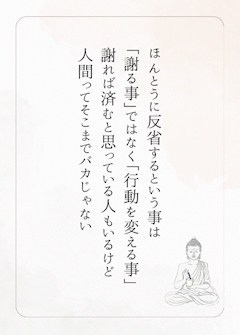 ほんとうに反省するという事は
「謝る事」ではなく「行動を変える事」
謝れば済むと思っている人もいるけど
人間ってそこまでバカじゃない